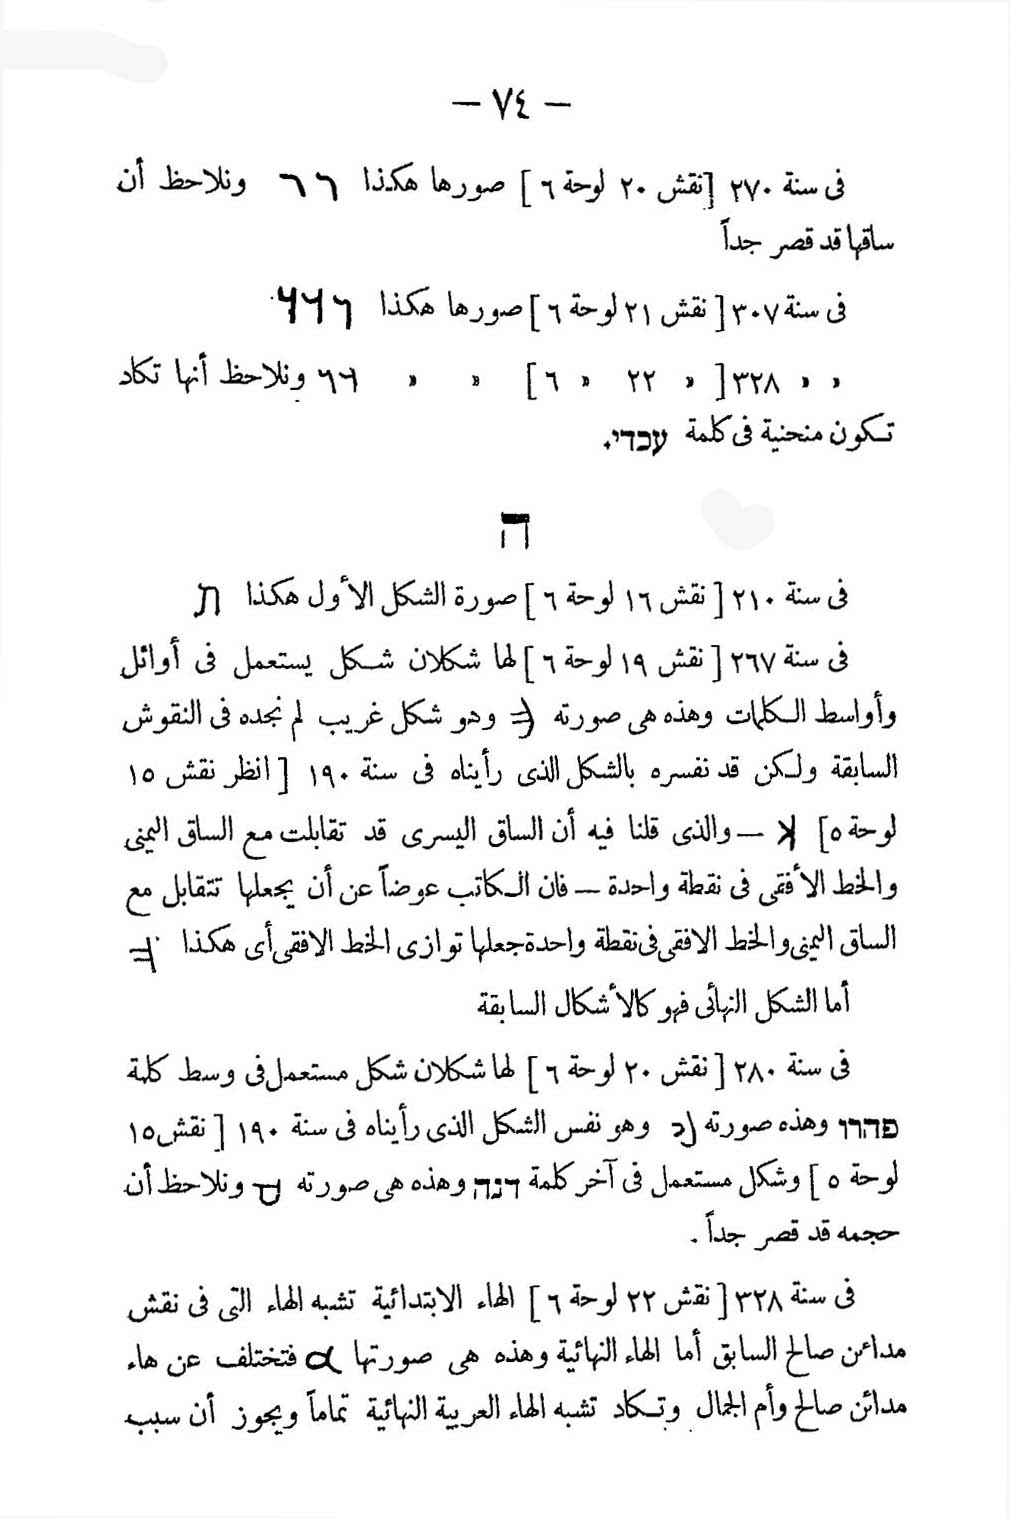 — ٧٤ —
فى سنة ٢٧٠ [نقش ٢٠ لوحة ٦] صورها هكذا ونلاحظ أن
ساقها قد قصر جداً
فى سنة ٣٠٧ [نقش ٢١ لوحة ٦] صورها هكذا
» » ٣٢٨ [ » ٢٢ » ٦] » » ونلاحظ أنها تكاد
تكون منحنية فى كلمة עכדי.
ה
فى سنة ٢١٠ [نقش ١٦ لوحة ٦] صورة الشكل الأول هكذا
فى سنة ٢٦٧ [نقش ١٩ لوحة ٦] لها شكلان شكل يستعمل فى أوائل
وأواسط الكلمات وهذه هى صورته وهو شكل غريب لم نجده فى النقوش
السابقة ولكن قد نفسره بالشكل الذى رأيناه فى سنة ١٩٠ [انظر نقش ١٥
لوحة ٥] — والذى قلنا فيه أن الساق اليسرى قد تقابلت مع الساق اليمنى
والخط الأفقى فى نقطة واحدة — فان الكاتب عوضاً عن أن يجعلها تتقابل مع
الساق اليمنى والخط الافقى فى نقطة واحدة جعلها توازى الخط الافقى أى هكذا
أما الشكل النهائى فهو كالأشكال السابقة
فى سنة ٢٨٠ [نقش ٢٠ لوحة ٦] لها شكلان شكل مستعمل فى وسط كلمة
פהרו وهذه صورته وهو نفس الشكل الذى رأيناه فى سنة ١٩٠ [نقش ١٥
لوحة ٥] وشكل مستعمل فى آخر كلمة דנה وهذه هى صورته ونلاحظ أن
حجمه قد قصر جداً.
فى سنة ٣٢٨ [نقش ٢٢ لوحة ٦] الهاء الابتدائية تشبه الهاء التى فى نقش
مدائن صالح السابق أما الهاء النهائية وهذه هى صورتها فتختلف عن هاء
مدائن صالح وأم الجمال وتكاد تشبه الهاء العربية النهائية تماماً ويجوز أن سبب